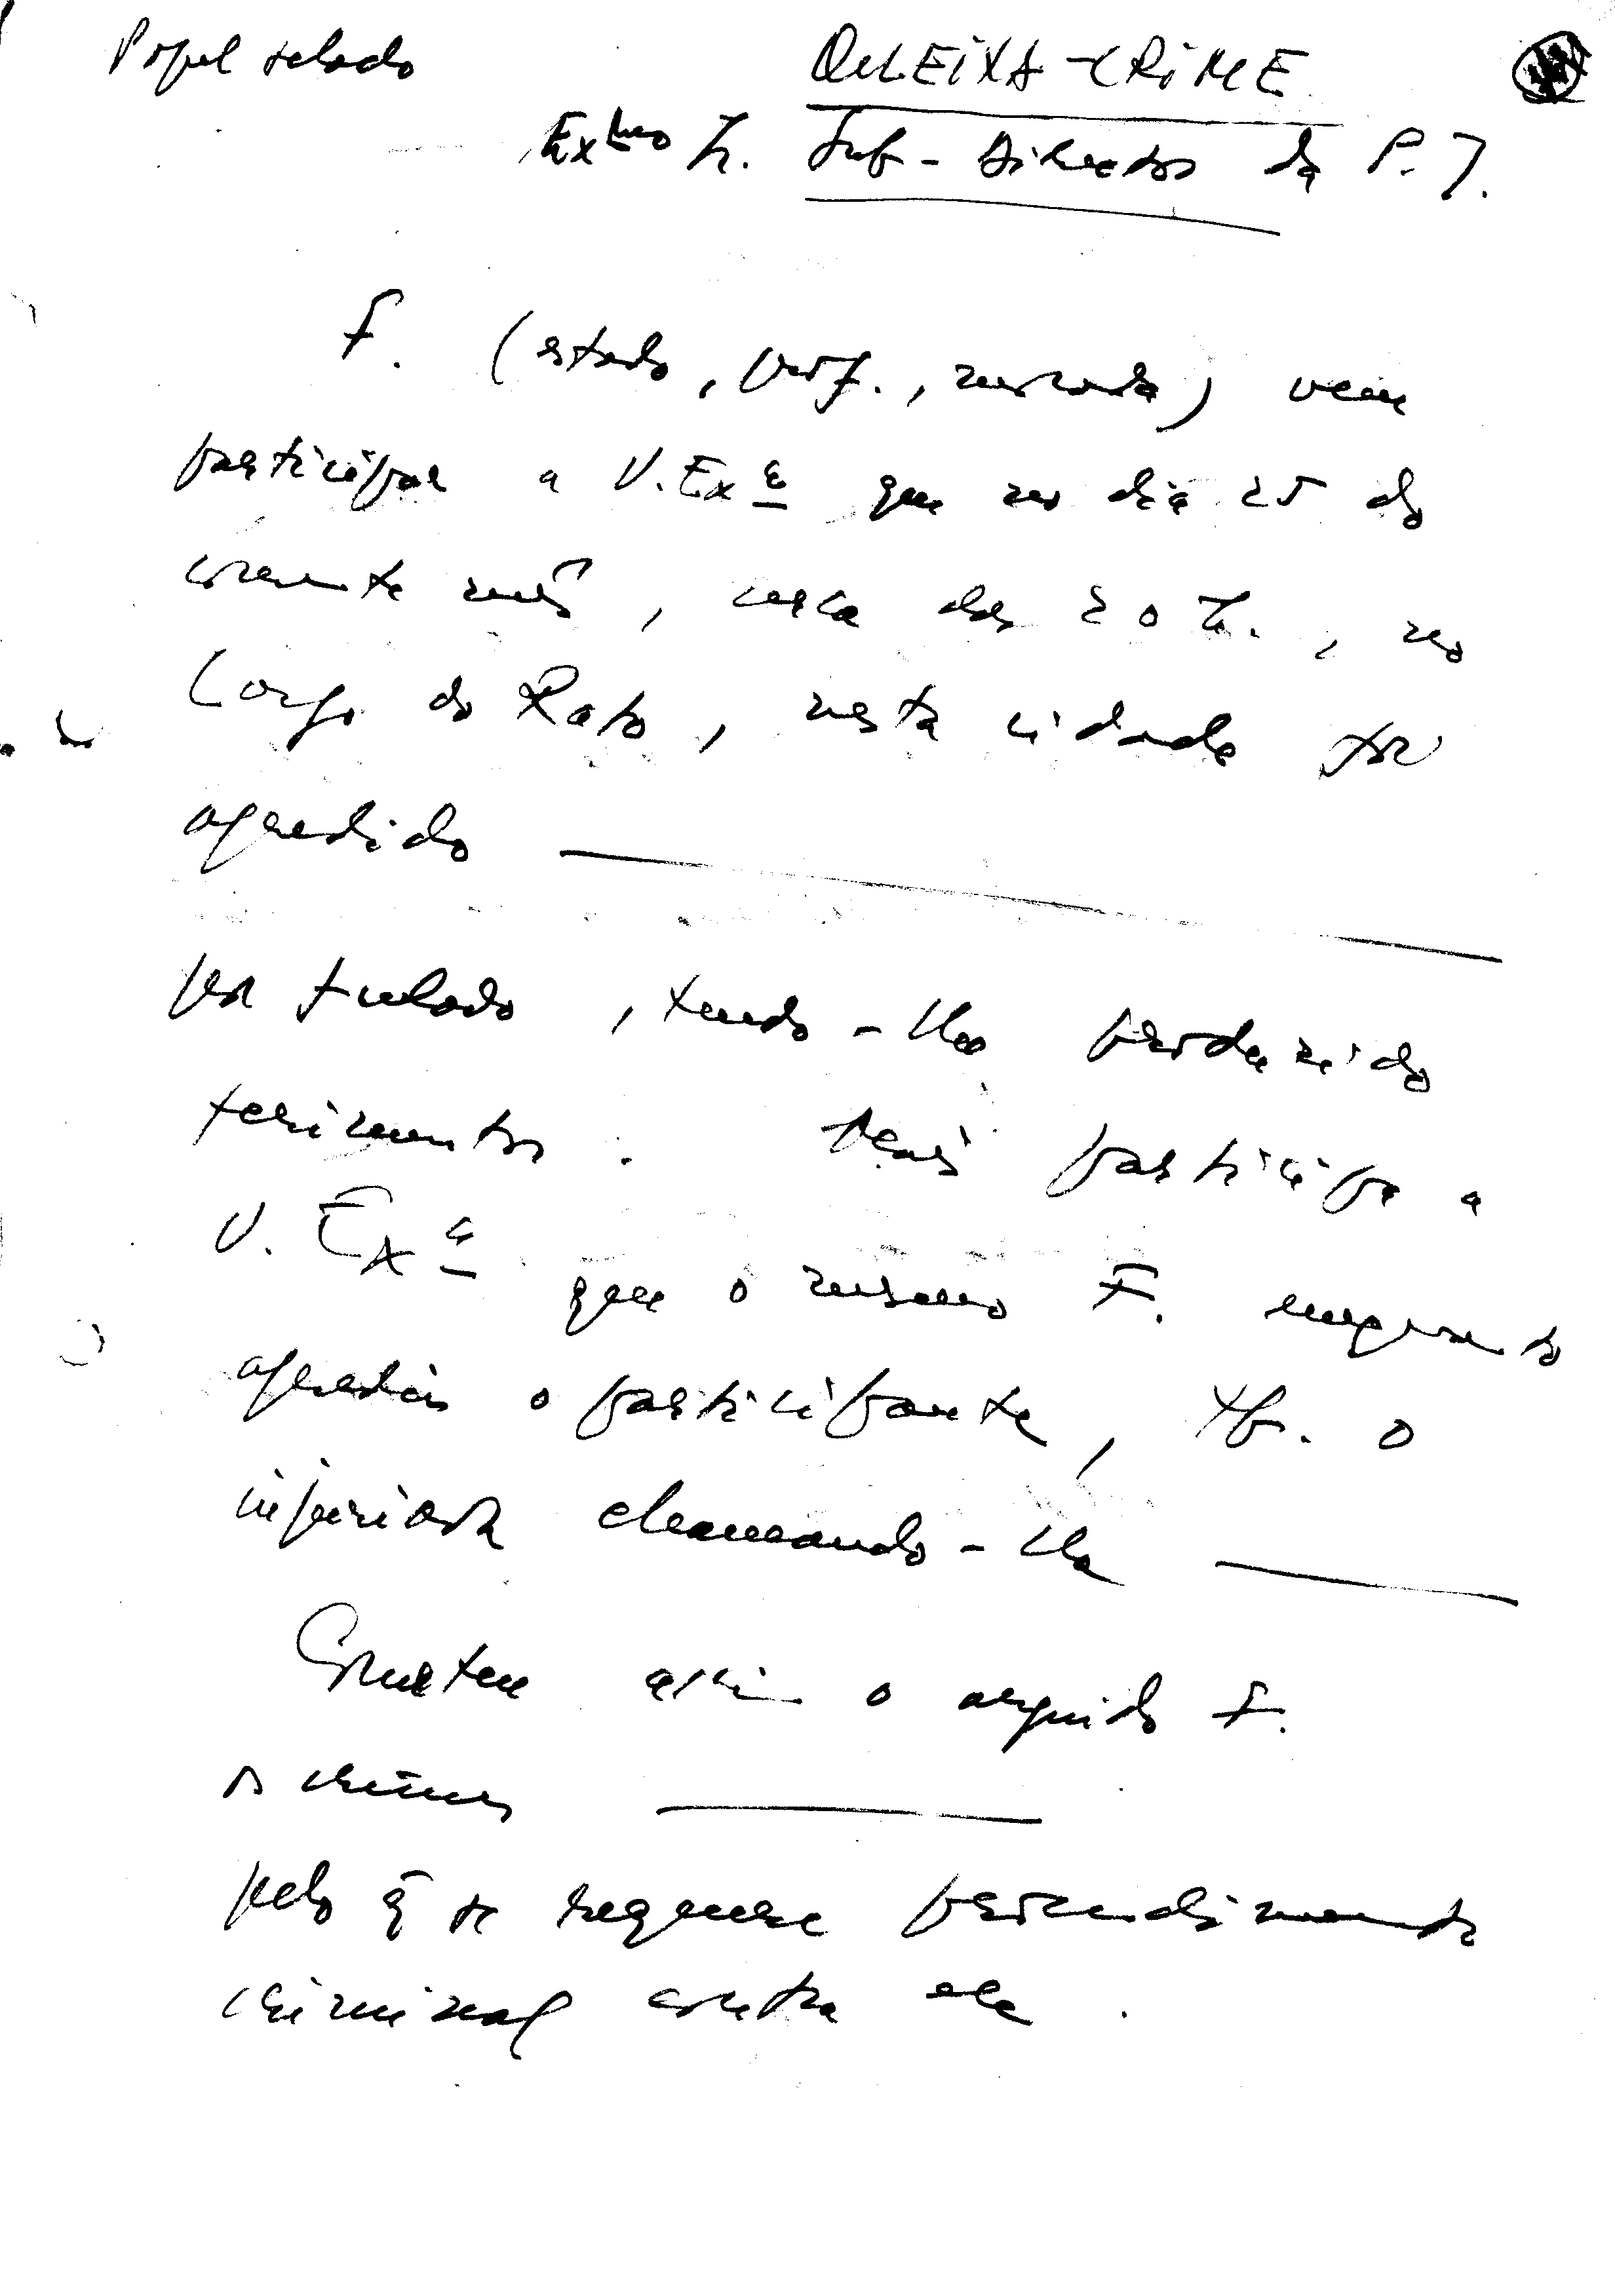 Papel selado
QUEIXA-CRIME
Exmo Sr. Sub-Director da P.J.
F. (estado, prof., morada) vem
participar a V. Exª que no dia 25 do
corrente mês, cerca das 20 h., no
Largo do Rato, nesta cidade foi
agredido
por fulano, tendo-lhe produzido
ferimentos. Mais participa a
V. Exª que o mesmo F. enquanto
agredia o participante, tb. o
injuriava chamando-lhe
Cometeu assim o arguido F.
os crimes
pelo q̃ se requer procedimento
criminal contra ele.